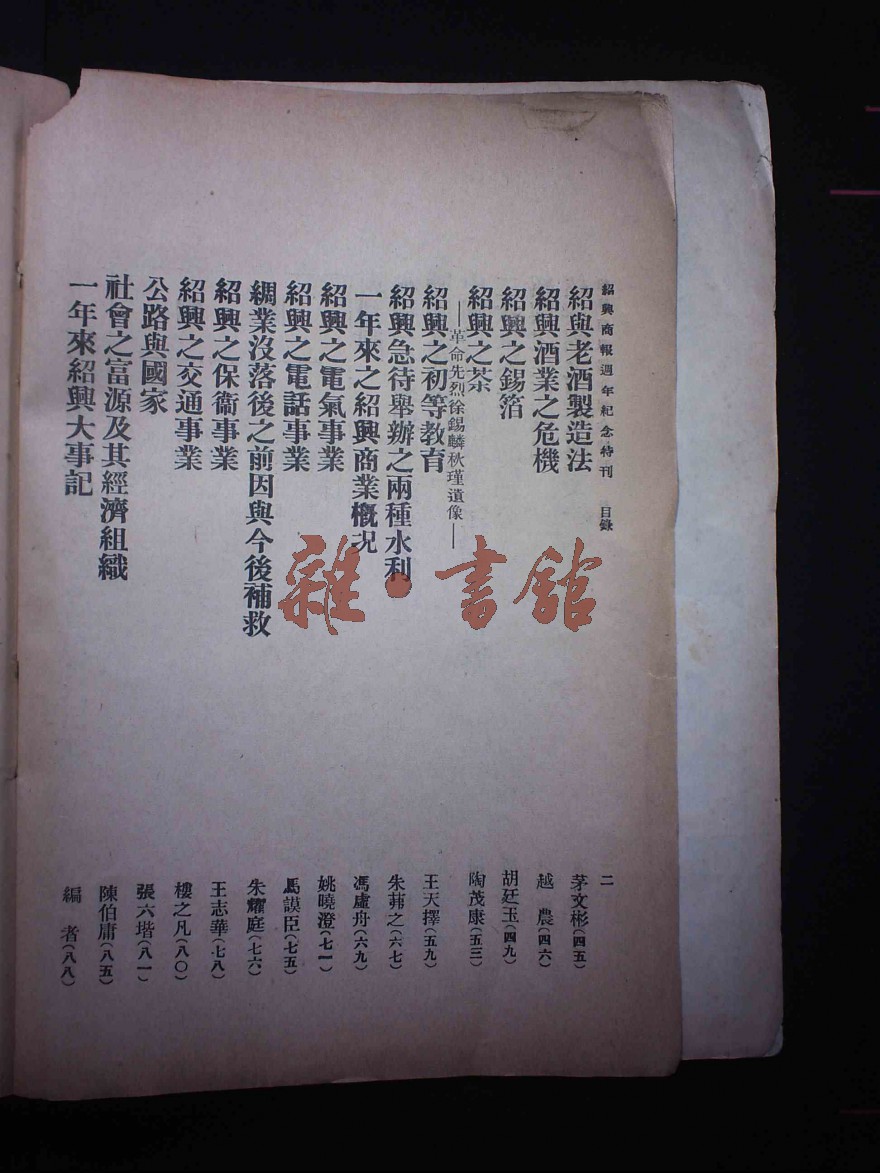 紹興商報週年紀念特刊　目錄　二
紹與老酒製造法　茅文彬(四五)
紹興酒業之危機　越　農(四六)
紹興之錫箔　胡廷玉(四九)
紹興之茶　陶茂康(五三)
——革命先烈徐錫麟秋瑾遺像——
紹興之初等教育　王天擇(五九)
紹興急待舉辦之兩種水利　朱茀之(六七)
一年來之紹興商業概況　馮虛舟(六九)
紹興之電氣事業　姚曉澄(七一)
紹興之電話事業　馬謨臣(七五)
綢業沒落後之前因與今後補救　朱耀庭(七六)
紹興之保衞事業　王志華(七八)
紹興之交通事業　樓之凡(八〇)
公路與國家　張六堦(八一)
社會之富源及其經濟組織　陳伯庸(八五)
一年來紹興大事記　編　者(八八)
雜·書館